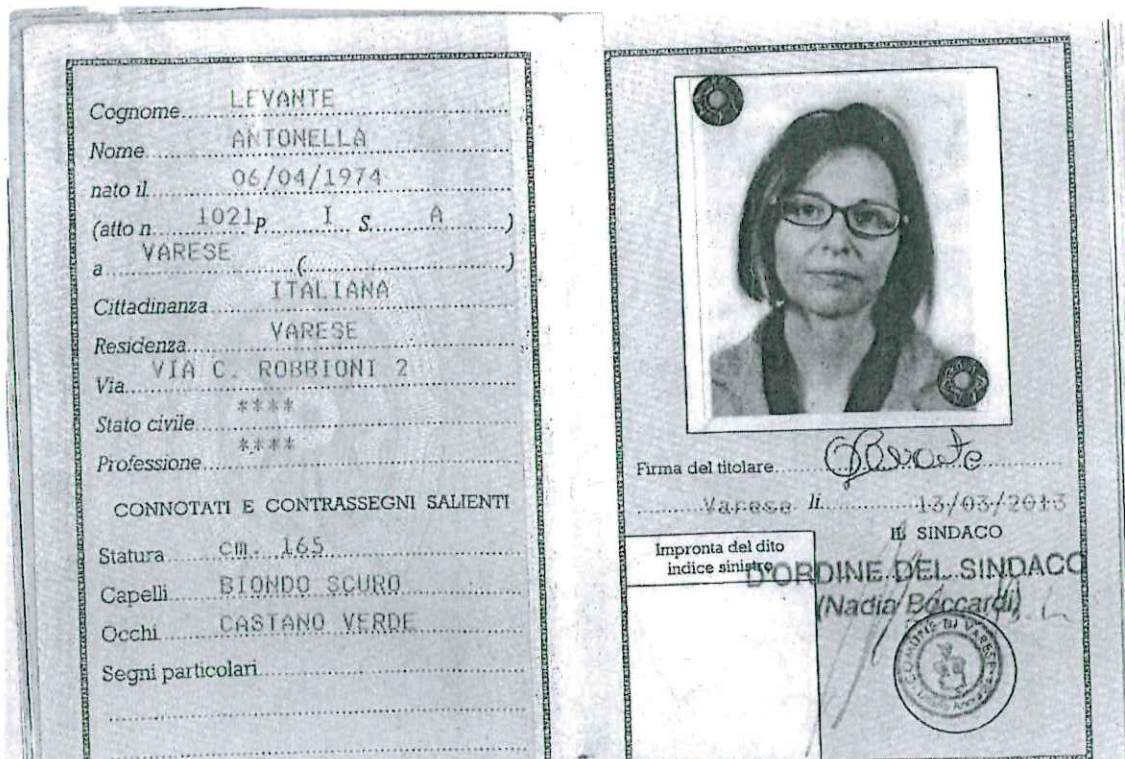 Cognome LEVANTE
Nome ANTONELLA
nato il 06/04/1974
(atto n 1021 P. I S. A )
a VARESE ( )
Cittadinanza ITALIANA
Residenza VARESE
Via VIA C. ROBBIONI 2
Stato civile ****
Professione ****
CONNOTATI E CONTRASSEGNI SALIENTI
Statura cm. 165
Capelli BIONDO SCURO
Occhi CASTANO VERDE
Segni particolari
Firma del titolare
Varese li 13/03/2013
IL SINDACO
Impronta del dito
indice sinistro
D'ORDINE DEL SINDACO
(Nadia Boccardi)
COMUNE DI VARESE